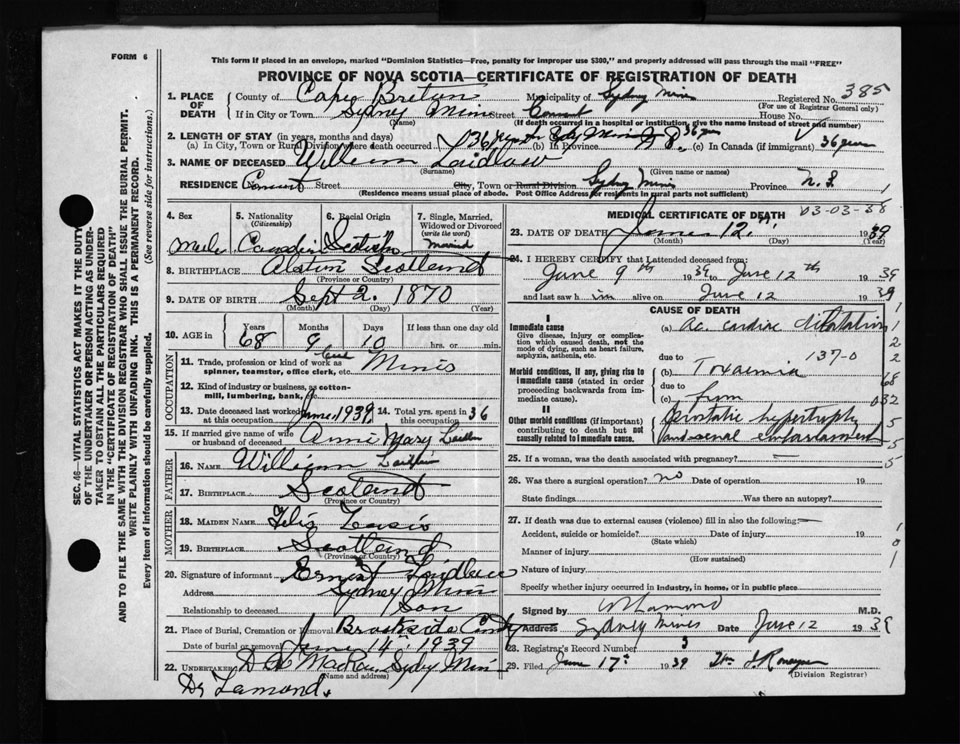 FORM 6
This form if placed in an envelope, marked "Dominion Statistics—Free, penalty for improper use $300," and properly addressed will pass through the mail "FREE"
PROVINCE OF NOVA SCOTIA—CERTIFICATE OF REGISTRATION OF DEATH
SEC. 46—VITAL STATISTICS ACT MAKES IT THE DUTY
OF THE UNDERTAKER OR PERSON ACTING AS UNDER-
TAKER TO OBTAIN ALL THE PARTICULARS REQUIRED
IN THE "CERTIFICATE OF REGISTRATION OF DEATH"
AND TO FILE THE SAME WITH THE DIVISION REGISTRAR WHO SHALL ISSUE THE BURIAL PERMIT.
WRITE PLAINLY WITH UNFADING INK. THIS IS A PERMANENT RECORD.
Every item of information should be carefully supplied. (See reverse side for instructions.)
1. PLACE OF DEATH County of Cape Breton Municipality of Sydney Mines Registered No. 385
(For use of Registrar General only)
If in City or Town Sydney Mines Street House No.
(Name) (If death occurred in a hospital or institution, give the name instead of street and number)
2. LENGTH OF STAY (in years, months and days)
(a) In City, Town or Rural Division where death occurred 36 years (b) In Province 36 years (c) In Canada (if immigrant) 36 years
3. NAME OF DECEASED William Laidlaw
(Surname) (Given name or names)
RESIDENCE Street City, Town or Rural Division Sydney Mines Province N.S.
(Residence means usual place of abode. Post Office Address for residents in rural parts not sufficient)
4. Sex 5. Nationality (Citizenship) 6. Racial Origin 7. Single, Married, Widowed or Divorced (write the word)
Male Canadian Scotish Married
8. BIRTHPLACE Scotland
(Province or Country)
9. DATE OF BIRTH Sept 2. 1870
(Month) (Day) (Year)
10. AGE in Years Months Days If less than one day old
68 9 10 hrs. or min.
OCCUPATION
11. Trade, profession or kind of work as spinner, teamster, office clerk, etc. Coal Mines
12. Kind of industry or business, as cotton-mill, lumbering, bank, etc.
13. Date deceased last worked at this occupation June 1939 14. Total yrs. spent in this occupation 36
15. If married give name of wife or husband of deceased Annie Mary Laidlaw
FATHER
16. NAME William Laidlaw
17. BIRTHPLACE Scotland
(Province or Country)
MOTHER
18. MAIDEN NAME
19. BIRTHPLACE Scotland
(Province or Country)
20. Signature of informant Ernest Laidlaw
Address Sydney Mines
Relationship to deceased Son
21. Place of Burial, Cremation or Removal Brookside
Date of burial or removal June 14th 1939
22. Undertaker Sydney Mines
(Name and address)
Dr Lamond.
MEDICAL CERTIFICATE OF DEATH 03-03-38
23. DATE OF DEATH June 12 1939
(Month) (Day) (Year)
24. I HEREBY CERTIFY that I attended deceased from:
June 9th 1939 to June 12th 1939
and last saw him alive on June 12 1939
CAUSE OF DEATH
I
Immediate cause (a) Ac. cardiac dilatation
Give disease, injury or complication which caused death, not the mode of dying, such as heart failure, asphyxia, asthenia, etc.
due to 137-0
Morbid conditions, if any, giving rise to immediate cause (stated in order proceeding backwards from immediate cause). (b) Toxaemia
due to
(c) from
II
Other morbid conditions (if important) contributing to death but not causally related to immediate cause.
Prostatic hypertrophy
and renal embarrassment
25. If a woman, was the death associated with pregnancy?
26. Was there a surgical operation? no Date of operation 19
State findings Was there an autopsy?
27. If death was due to external causes (violence) fill in also the following:—
Accident, suicide or homicide? Date of injury 19
(State which)
Manner of injury
(How sustained)
Nature of injury
Specify whether injury occurred in industry, in home, or in public place
Signed by Lamond M.D.
Address Sydney Mines Date June 12 1939
28. Registrar's Record Number
29. Filed June 17th 1939
(Division Registrar)